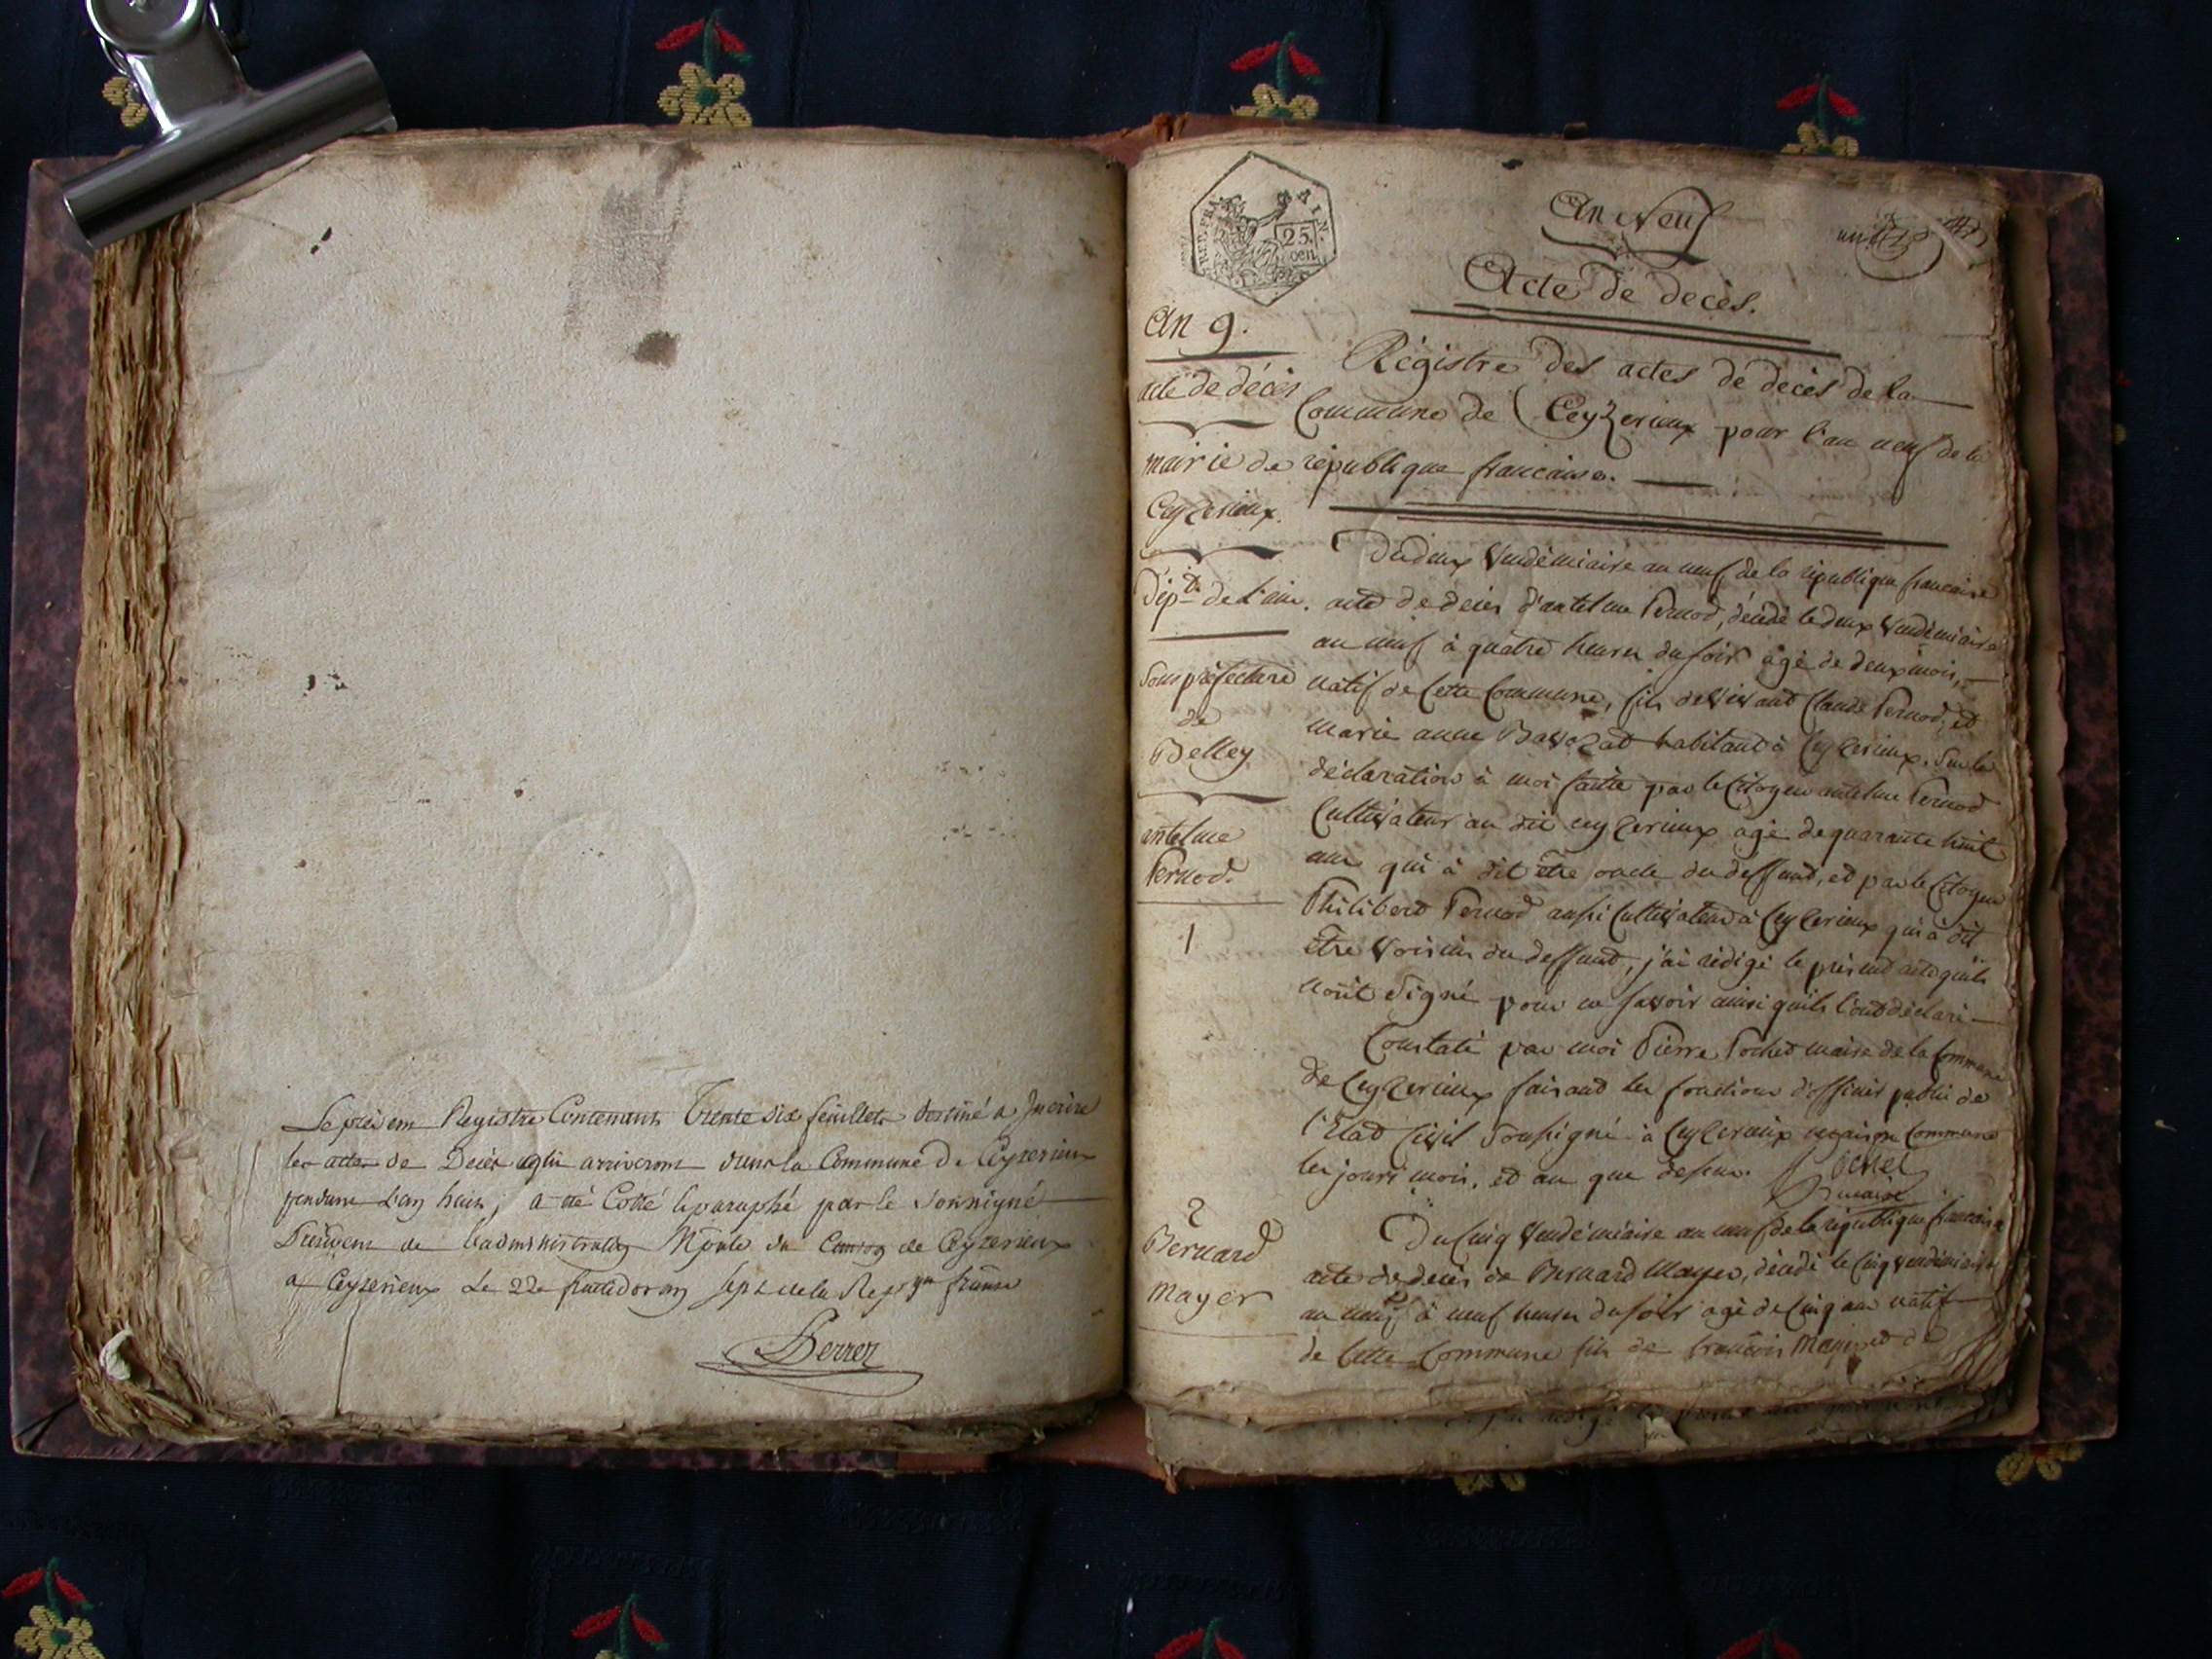 Le présent Registre Contenant Trente Six feuillets destiné a Inscrire
les actes de Décès qui arriveront dans la Commune de Ceyzerieux
pendant L'an huit, a été Cotté & paraphé par le Soussigné
Président de L'administration Mple du Canton de Ceyzerieux
a Ceyzerieux Le 22e fructidor an Sept de la Repque franse
Perrer
RÉP. FRA.
25
cen
An Neuf
Acte de décès.
An 9.
acte de décès
mairie de
Ceyzerieux.
Dépt de L'ain.
Sous préfecture
de
Belley
antelme
Pernod.
1
Régistre des actes de décès de la
Commune de Ceyzerieux pour l'an neuf de la
république francaise.
Du deux Vendémiaire an neuf de la république francaise
acte de deces d'antelme Pernod, décédé le deux Vendémiaire
an neuf à quatre heures du soir agé de deux mois,
natif de Cette Commune, fils de Vivant Claude Pernod, et
marie anne Bavozat habitant à Ceyzerieux. Sur la
déclaration à moi faitte par le Citoyen antelme Pernod
Cultivateur au dit ceyzerieux agé de quarante huit
ans qui à dit etre oncle du deffunt, et par le Citoyen
Philibert Pernod aussi Cultivateur à Ceyzerieux qui à dit
être Voisin du deffunt, j'ai rédigé le présent acte quils
nont Signé pour ne savoir ainsi quils l'ont déclaré
Constaté par moi Pierre Pochet maire de la Commune
de Ceyzerieux faisant les fonctions d'officier public de
l'Etat Civil Soussigné à Ceyzerieux maison Commune
les jours mois, et an que dessus. Pochet
maire
2
Bernard
Mayer
Du Cinq Vendémiaire an neuf de la république francaise
acte de deces de Bernard Mayer, décédé le Cinq Vendémiaire
an neuf à neuf heures du soir agé de Cinq ans natif
de Cette Commune fils de francois Mayer et de